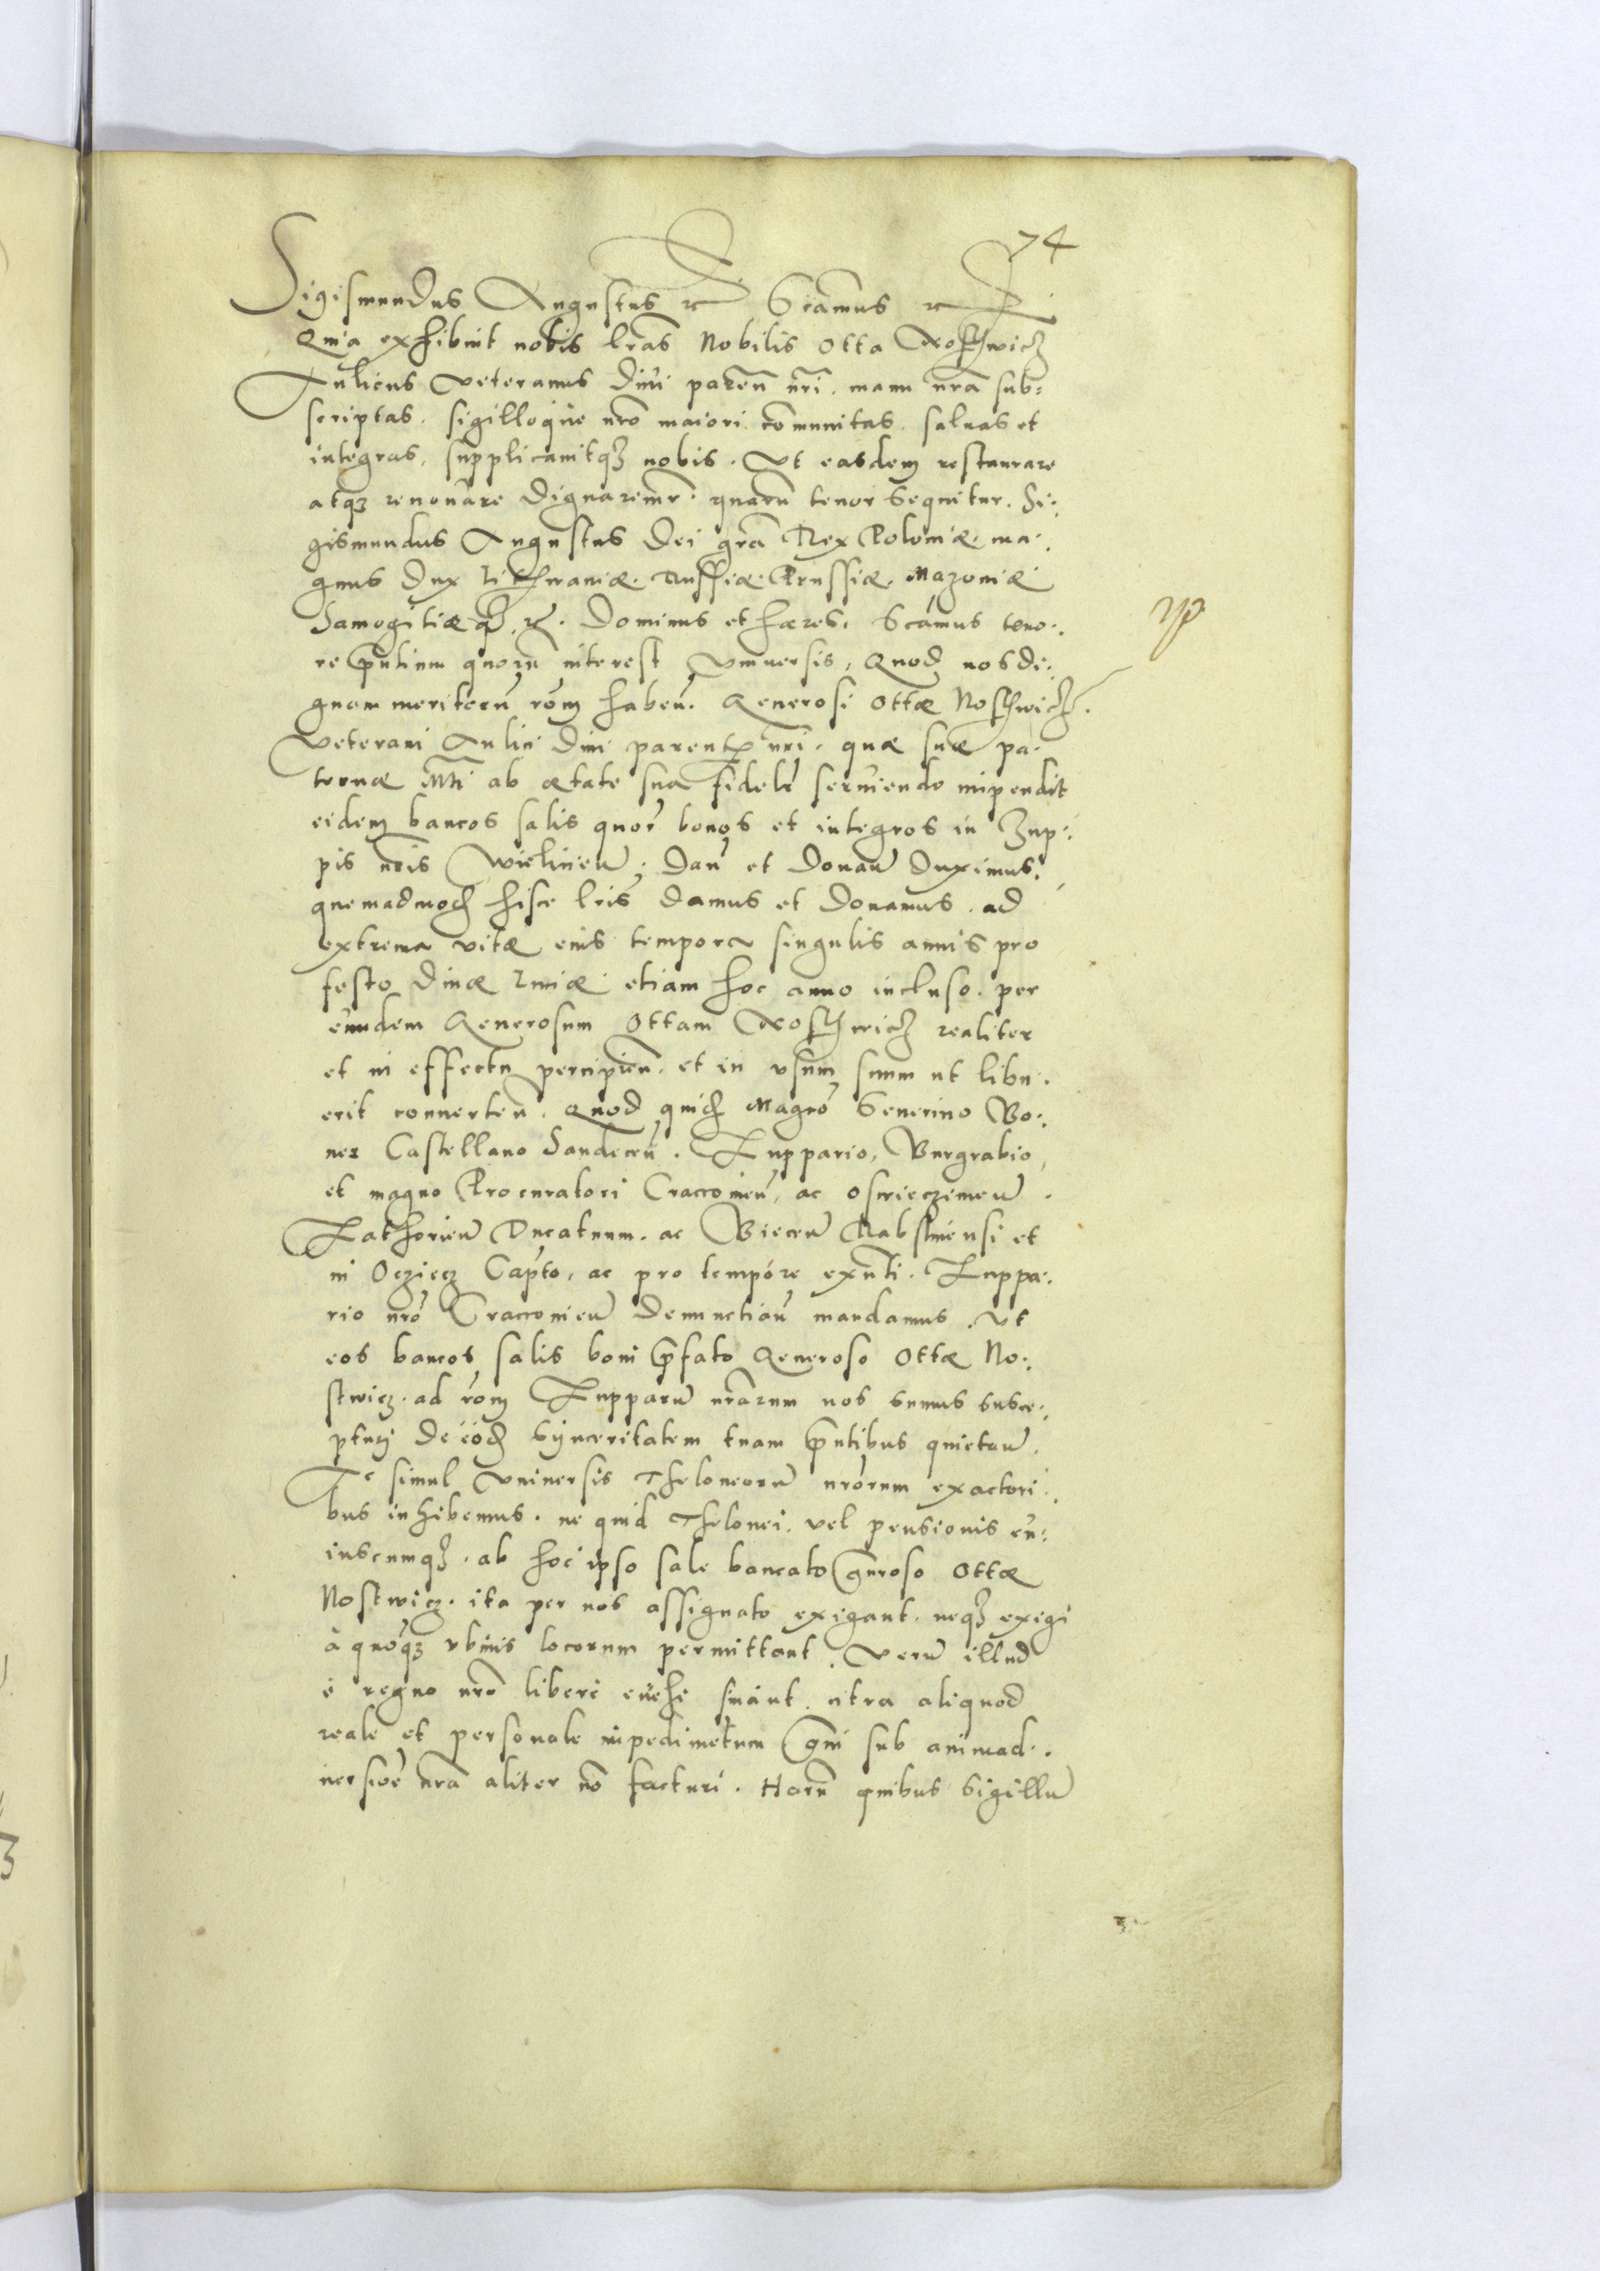 74
Sigismundus Augustus etc Scamus etc
Quia exhibuit nobis lras Nobilis Otta Nostwicz
Aulicus veteranus divi paren nri. manu nra sub:
scriptas. sigilloque nro maiori comunitas. saluas et
integras, supplicauitqz nobis. Ut easdem restaurare
atqz renouare dignaremr. quaru tenor sequitur. Si:
gismundus Augustus Dei gra Rex Poloniæ. ma:
gnus Dux Lithuaniæ. Russiæ. Prussiæ. Mazouiæ
Samogitiæ q etc. Dominus et hæres. Scamus teno:
re pntium quoru interest vniuersis, Quod nos di:
gnam meritoru rom haben. Generosi Ottæ Nostwicz.
veterani Aulici diui parentis nri. quæ suæ pa:
ternæ Mti ab ætate sua fideli seruiendo impendit
eidem bancos salis quor bonos et integros in Zup:
pis nris Wielicien. Dan et donan duximus.
quemadmod hisce lris damus et donamus. ad
extrema vitæ eius tempora singulis annis pro
festo Diuæ Luciæ etiam hoc anno incluso. per
eundem Generosum Ottam Nostwicz realiter
et in effectu percipien. et in vsum suum ut libu:
erit conuerten. Quod quid Magco Seuerino Bo:
ner Castellano Sandecen. Zuppario, Burgrabio,
et magno Procuratori Cracouien, ac Oswieczimen.
Zathorien Ducatuum. ac Biecen Rabstinensi et
in Ocziecz Capto, ac pro tempore exnti. Zuppa:
rio nro Cracouien demunctian mandamus. Ut
eos bancos salis boni pfato Generoso Ottæ No:
stwicz. ad rom Zupparu nrarum nos sumus susce:
pturi de eod synceritatem tuam pntibus quietan.
Ac simul vniuersis Theloneoru nrorum exactori:
bus inhibemus. ne quid Thelonei. vel pensionis cu:
iuscumqz. ab hoc ipso sale bancato gnroso Ottæ
Nostwicz. ita per nos assignato exigant. neqz exigi
à quoqz vbiuis locorum permittant. veru illud
è regno nro liberè euehi sinant. citra aliquod
reale et personale impedimetum gni sub animad:
uersioe nra aliter no facturi. Haru quibus Sigillu